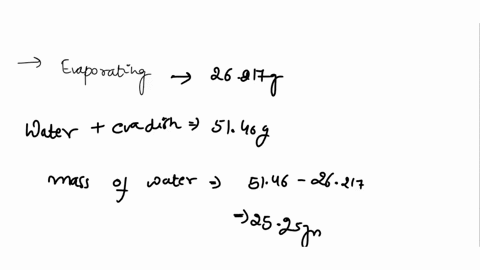 → Evaporating → 26.217g
Water + evadish ⇒ 51.46g
mass of water ⇒ 51.46 - 26.217
⇒ 25.25gm